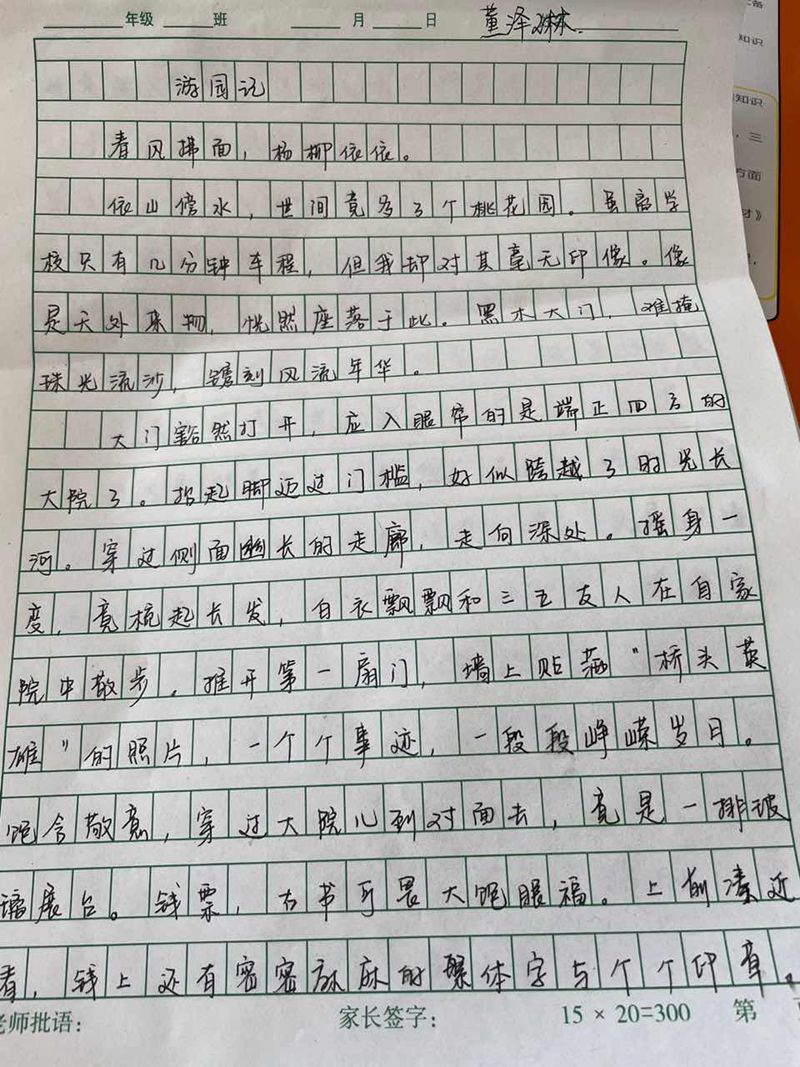 年级 班 月 日 董泽琳
游园记
春风拂面，杨柳依依。
依山傍水，世间竟多了个桃花园。虽离学
校只有几分钟车程，但我却对其毫无印像。像
是天外来物，恍然座落于此。黑木大门，难掩
珠光流沙，镌刻风流年华。
大门豁然打开，应入眼帘的是端正四方的
大院了。抬起脚迈过门槛，好似跨越了时光长
河。穿过侧面幽长的走廊，走向深处。摇身一
变，竟梳起长发，白衣飘飘和三五友人在自家
院中散步。推开第一扇门，墙上贴满"桥头英
雄"的照片，一个个事迹，一段段峥嵘岁月。
饱含敬意，穿过大院儿到对面去，竟是一排玻
璃展台。钱票，古书可畏大饱眼福。上前凑近
看，钱上还有密密麻麻的繁体字与个个印章。
老师批语： 家长签字： 15 × 20=300 第
知识
知识
，三
方面